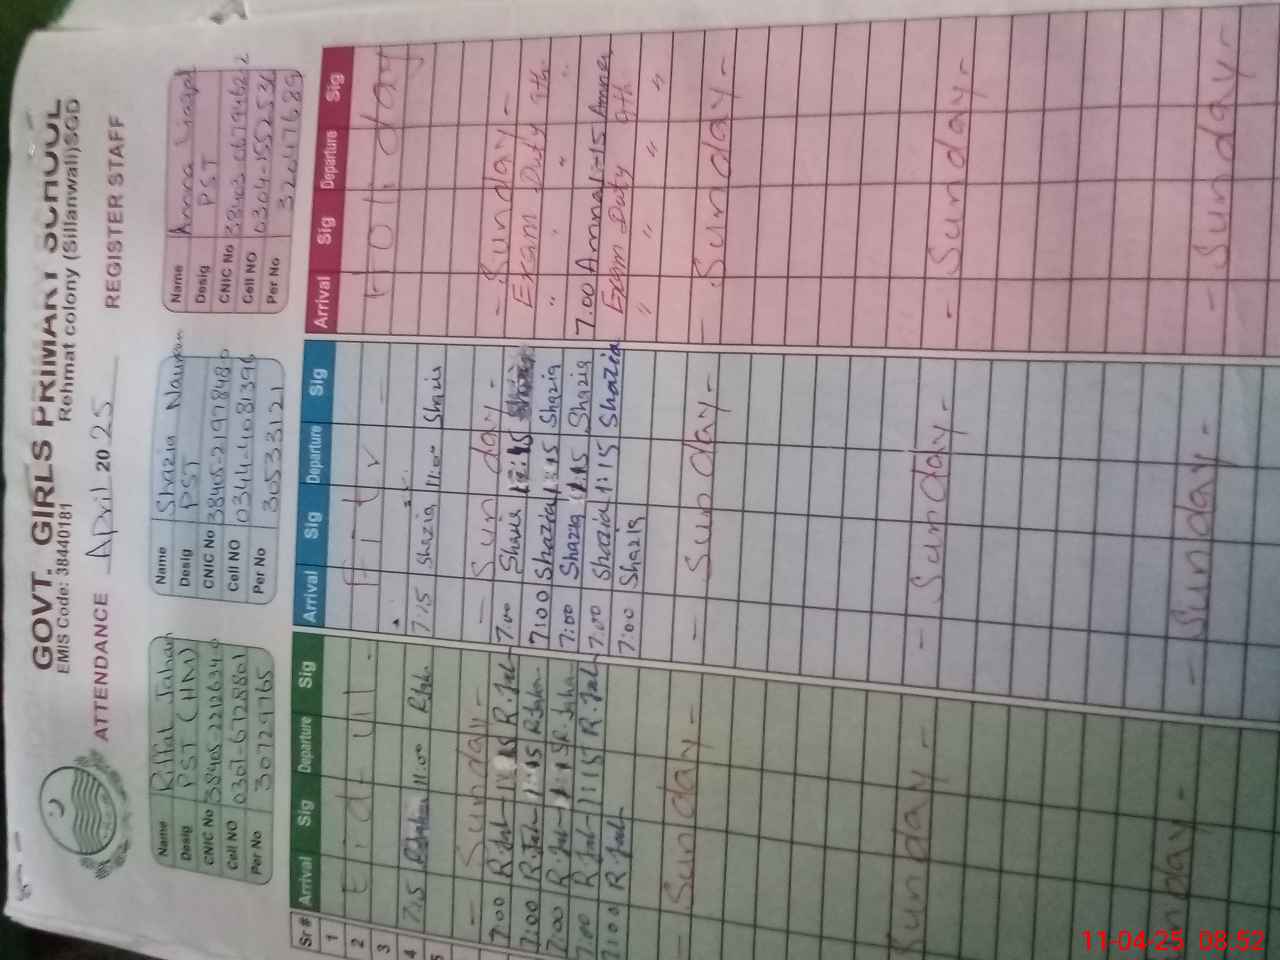 GOVT. GIRLS PRIMARY SCHOOL
EMIS Code: 38440181 Rehmat colony (Sillanwali)SGD
ATTENDANCE April 2025 REGISTER STAFF
Name Riffat Jahan
Desig PST (HM)
CNIC No
Cell NO 0301-6728801
Per No 30729765
Name Shazia
Desig PST
CNIC No 38405-2197848-0
Cell NO 0344-4081396
Per No 30533121
Name Amna
Desig PST
CNIC No
Cell NO 0304-1552536
Per No
Sr# Arrival Sig Departure Sig Arrival Sig Departure Sig Arrival Sig Departure Sig
1 Eid ul Fitr Holiday
2
3
4 7:15 11:00 7:15 Shazia 11:00 Shazia
5
- Sunday - - Sunday - - Sunday -
7:00 R.Jah 1:15 R.Jah 7:00 Shazia 1:15 Exam Duty 9th
7:00 R.Jah 1:15 R.Jahan 7:00 Shazia 1:15 Shazia " " " "
7:00 R.Jah 1:15 R.Jahan 7:00 Shazia 1:15 Shazia 7:00 Amna 1-15 Amna
7:00 R.Jah 1:15 R.Jah 7:00 Shazia 1:15 Shazia Exam Duty 9th
7:00 R.Jah 7:00 Shazia " " " "
- Sunday - - Sunday - - Sunday -
Sunday - - Sunday - - Sunday -
Sunday - - Sunday - - Sunday -
11-04-25 08:52